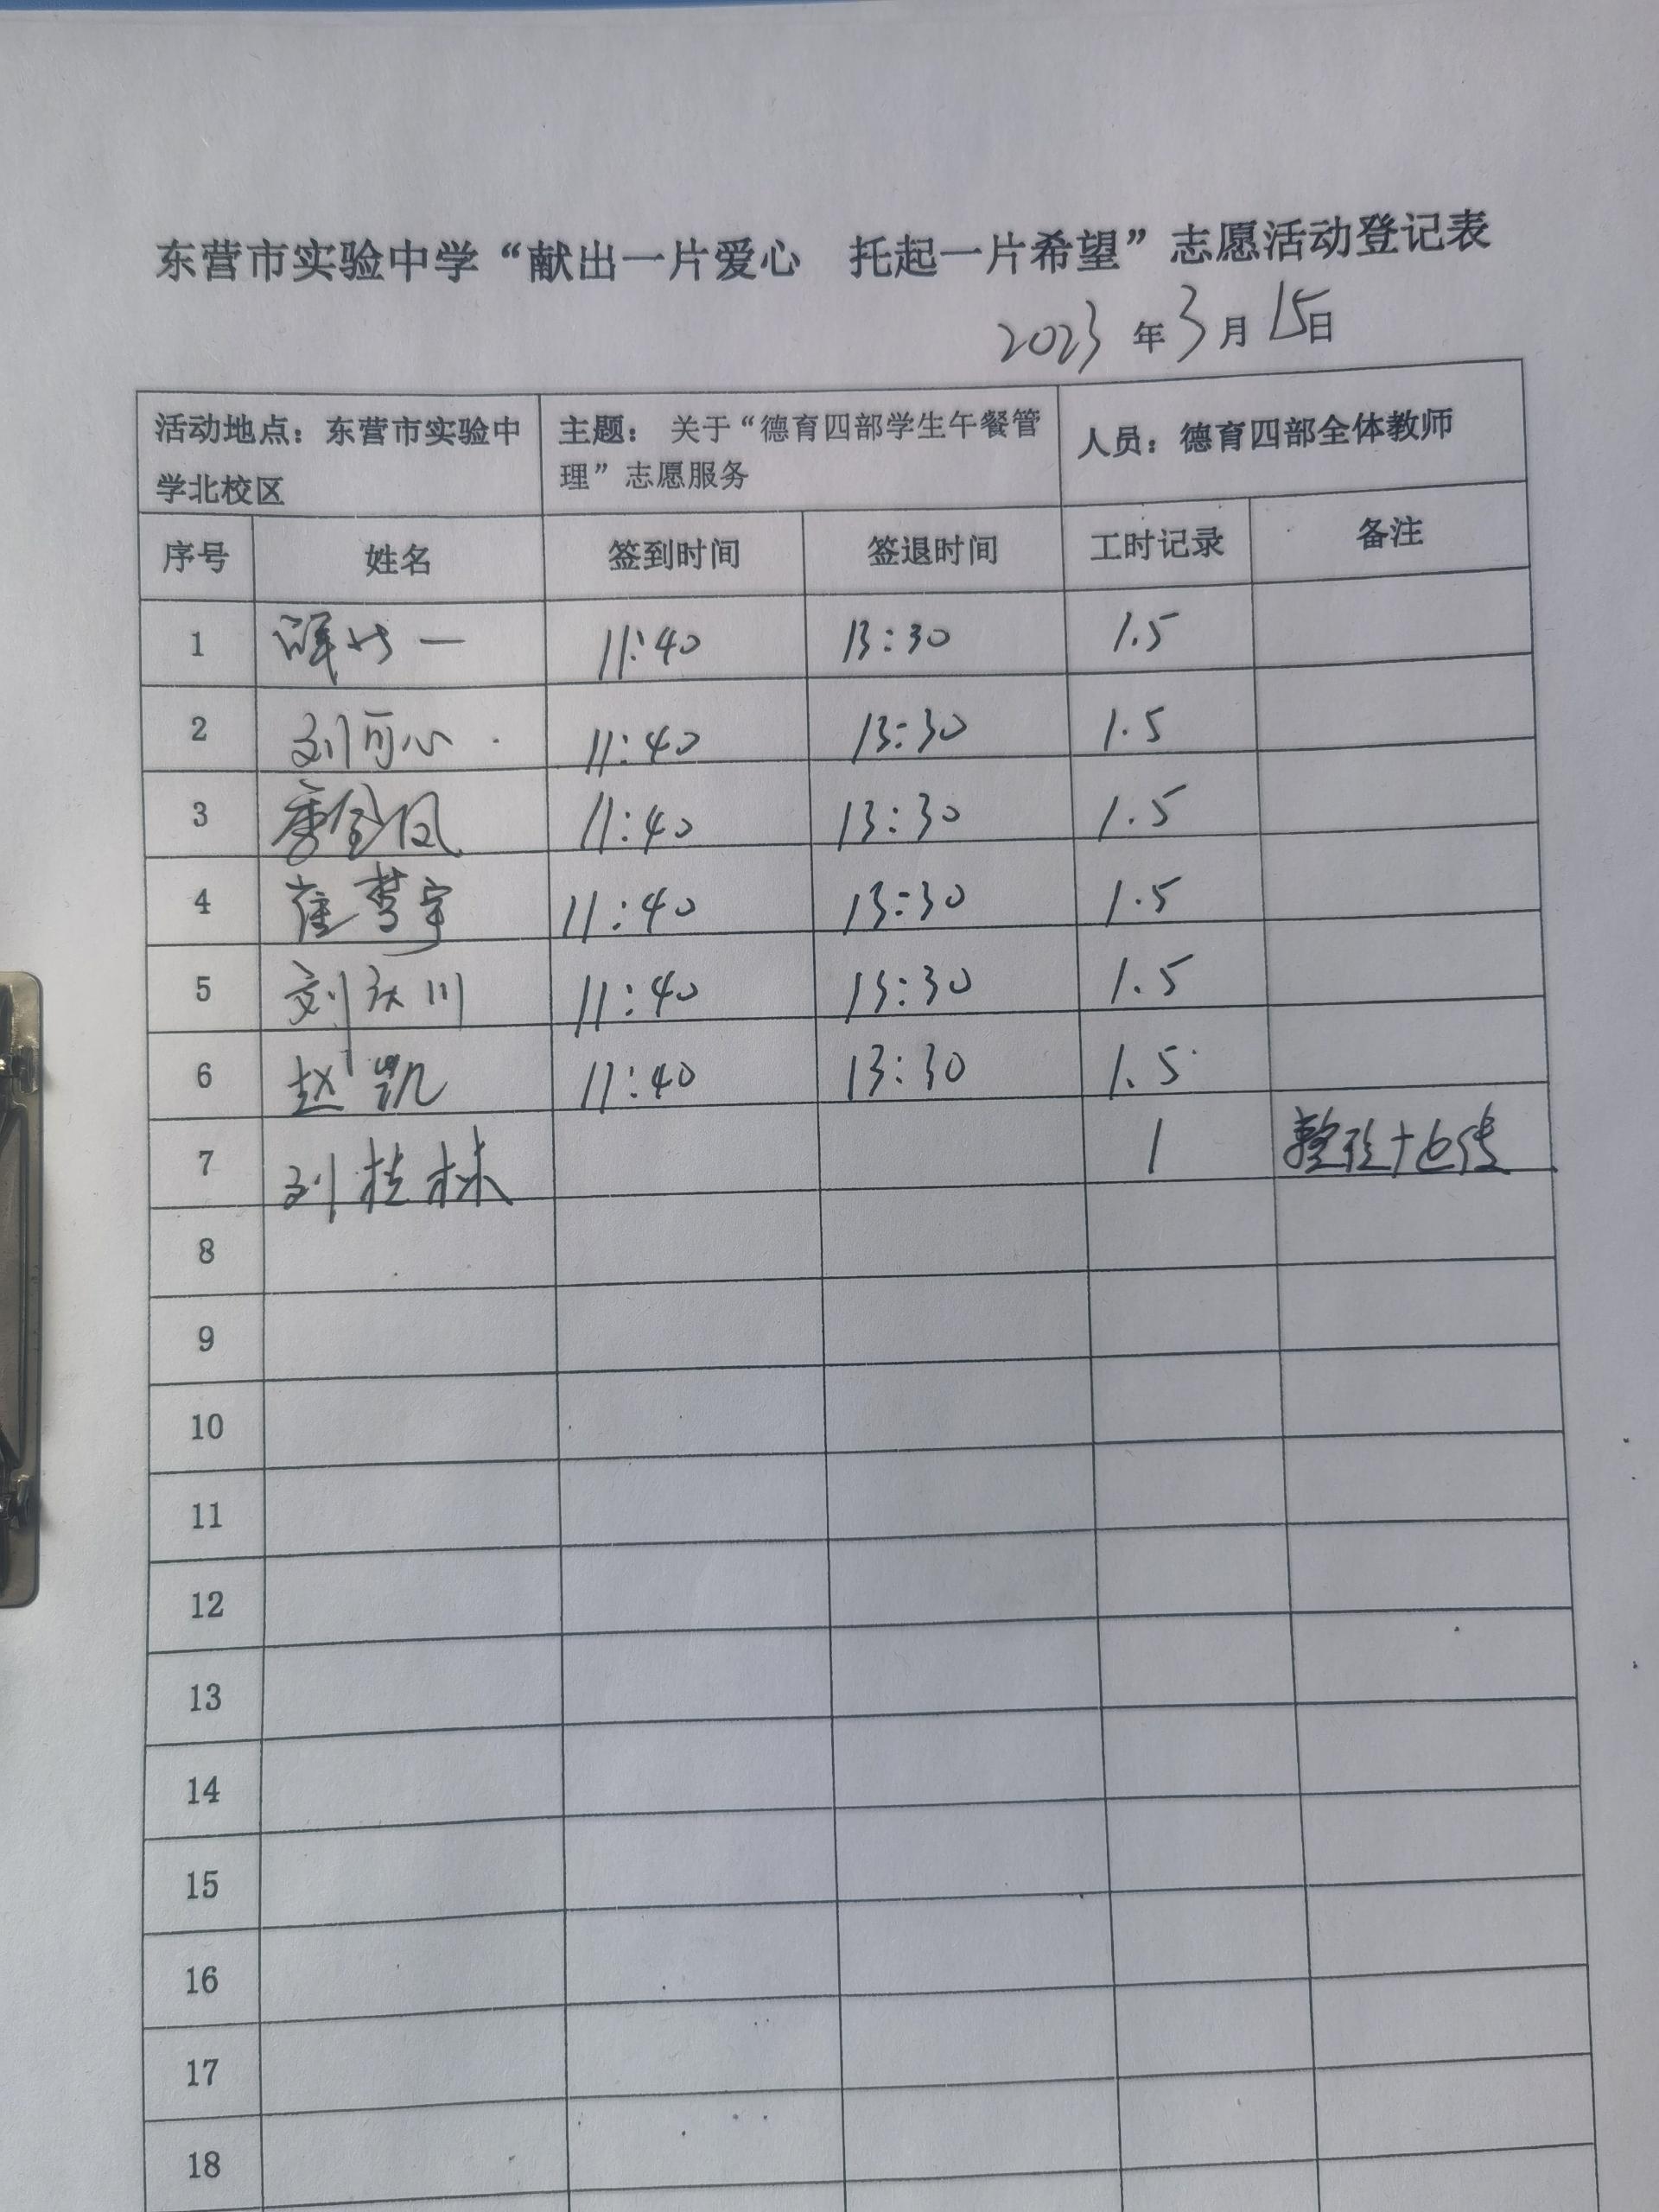 东营市实验中学“献出一片爱心 托起一片希望”志愿活动登记表
2023年3月15日
活动地点：东营市实验中学北校区 主题：关于“德育四部学生午餐管理”志愿服务 人员：德育四部全体教师
序号 姓名 签到时间 签退时间 工时记录 备注
1 一 11:40 13:30 1.5
2 刘可心 11:40 13:30 1.5
3 11:40 13:30 1.5
4 崔梦宇 11:40 13:30 1.5
5 刘庆川 11:40 13:30 1.5
6 赵凯 11:40 13:30 1.5
7 刘桂林 1
8
9
10
11
12
13
14
15
16
17
18